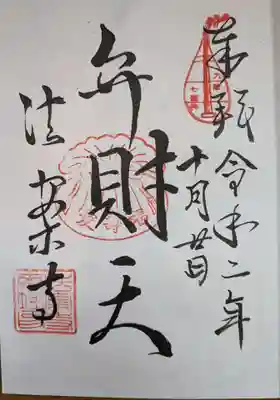 奉拝
令和二年
十月廿日
弁財天
法案寺